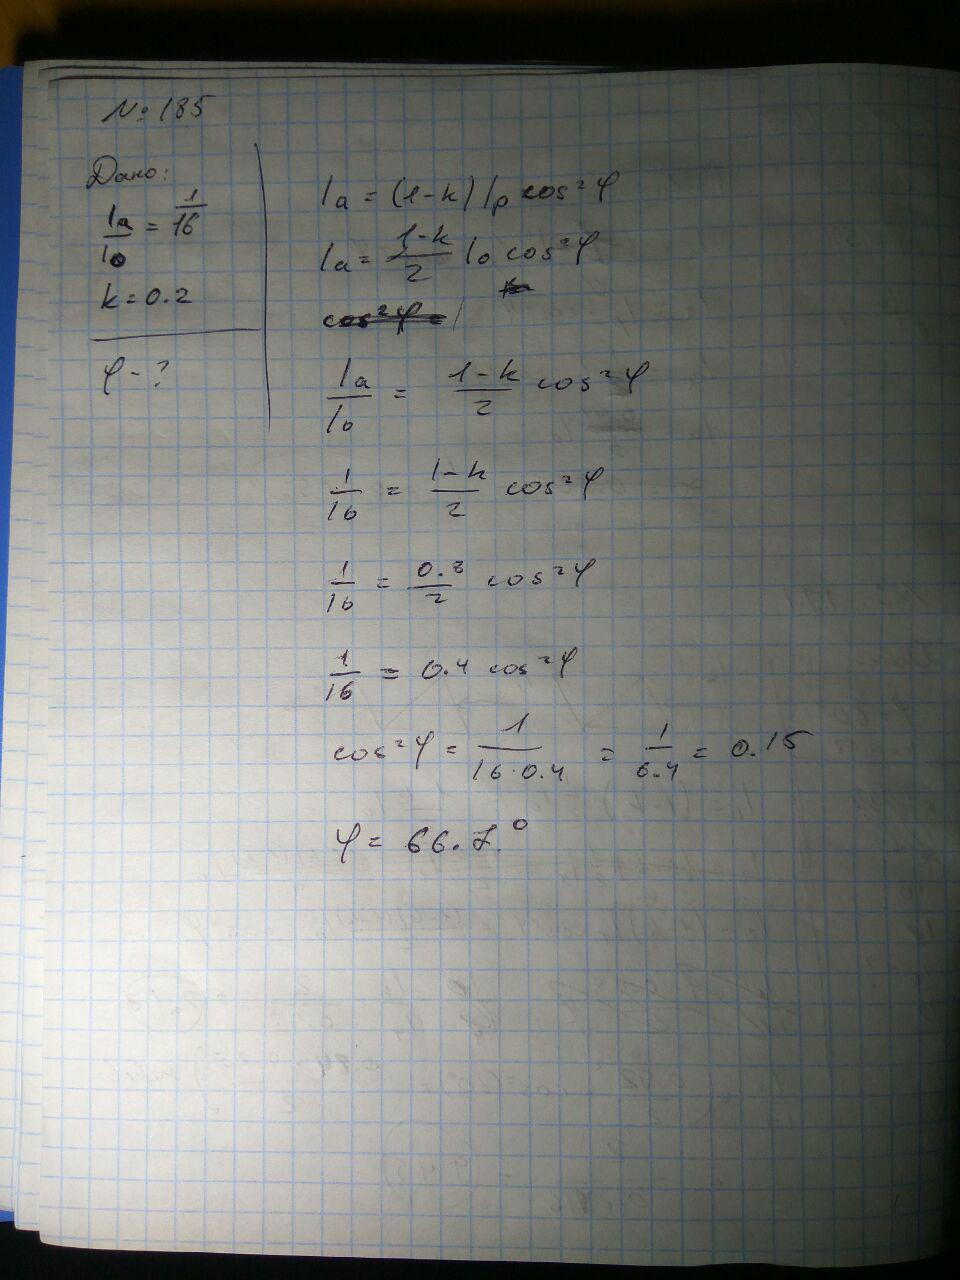 № 185
Дано:
Ia/I0 = 1/16
k = 0.2
φ - ?
Ia = (1-k) Ip cos²φ
Ia = (1-k)/2 I0 cos²φ
cos²φ =
Ia/I0 = (1-k)/2 cos²φ
1/16 = (1-k)/2 cos²φ
1/16 = 0.8/2 cos²φ
1/16 = 0.4 cos²φ
cos²φ = 1/(16·0.4) = 1/6.4 = 0.15
φ = 66.7°